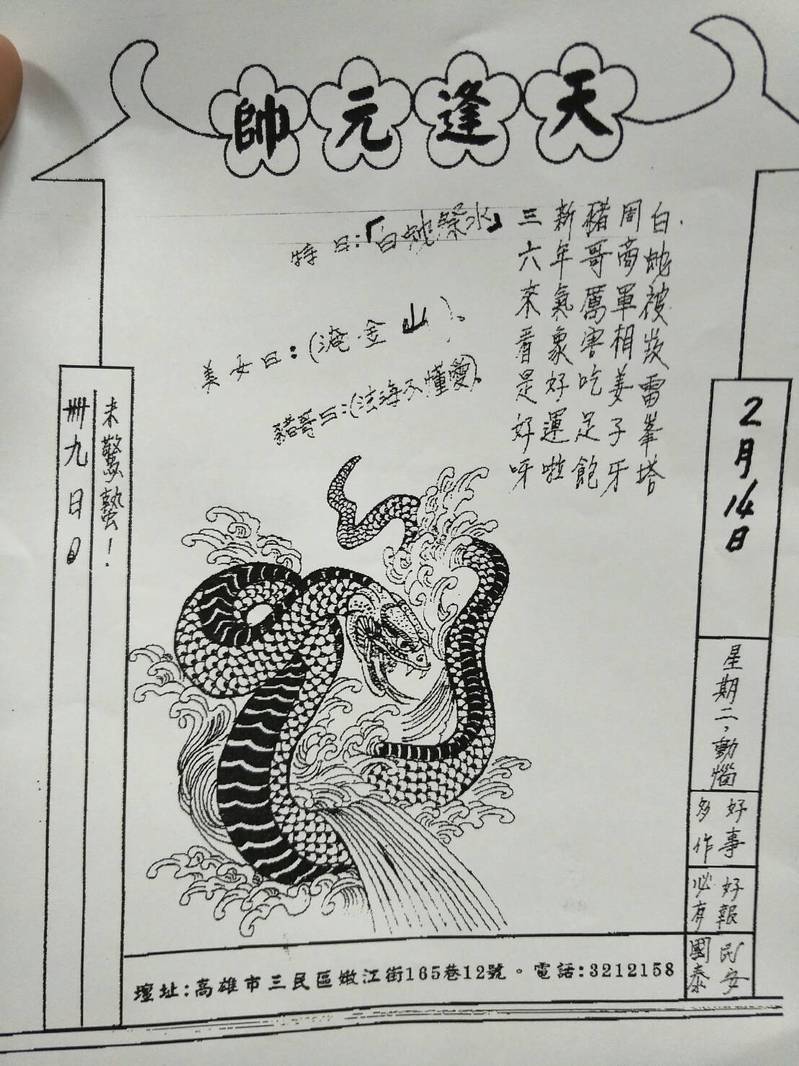 天逢元帥
2月14日
星期二,動惱
好事
多作
好報
必有
民安
國泰
白虵被攻雷峯塔
周商軍相姜子牙
豬哥厲害吃足飽
新年氣象好運啦
三六來看是好呀
特曰:「白虵祭水」
美女曰:(淹金山)。
豬哥曰:(法海不懂愛)。
未驚蟄!
卌九日
壇址:高雄市三民區嫩江街165巷12號。電話:3212158